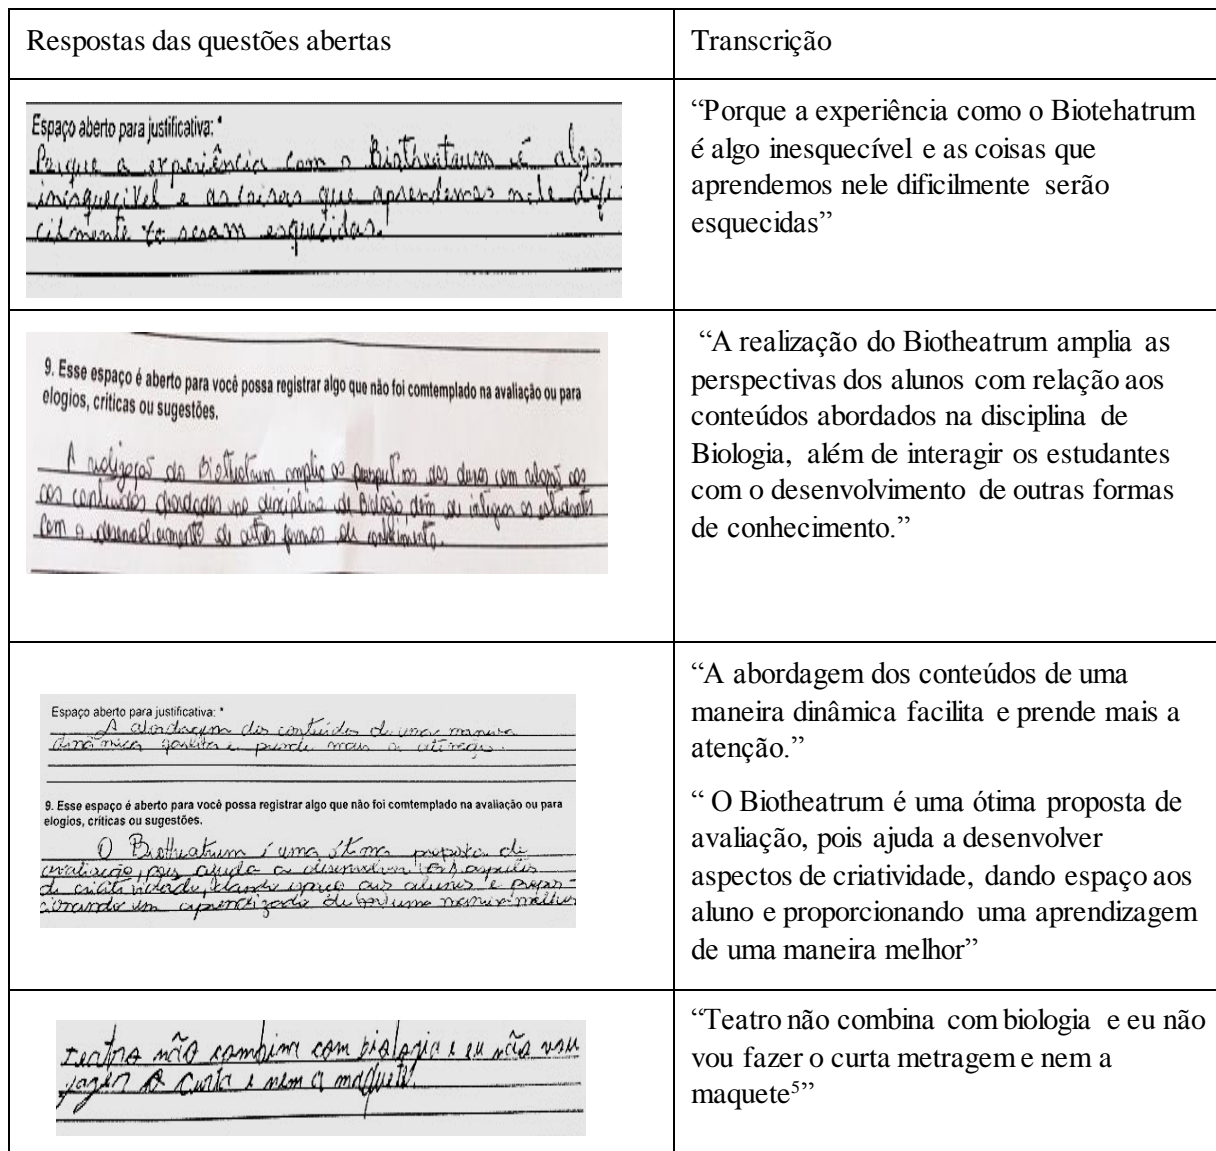 Respostas das questões abertas
Transcrição
Espaço aberto para justificativa: *
Porque a experiência com o Biotheatrum é algo
inisquecivel e as coisas que aprendemos nele difi
cilmente seram esquecidas.
“Porque a experiência como o Biotehatrum
é algo inesquecível e as coisas que
aprendemos nele dificilmente serão
esquecidas”
9. Esse espaço é aberto para você possa registrar algo que não foi comtemplado na avaliação ou para
elogios, críticas ou sugestões.
A realização do Biotheatrum amplia as perspectivas dos alunos com relação aos
aos conteúdos abordados na disciplina de Biologia além de os estudantes
com o desenvolvimento de outras formas de conhecimento.
“A realização do Biotheatrum amplia as
perspectivas dos alunos com relação aos
conteúdos abordados na disciplina de
Biologia, além de interagir os estudantes
com o desenvolvimento de outras formas
de conhecimento.”
Espaço aberto para justificativa: *
A abordagem dos conteúdos de uma maneira
dinâmica facilita e prende mais a atenção.
9. Esse espaço é aberto para você possa registrar algo que não foi comtemplado na avaliação ou para
elogios, críticas ou sugestões.
O Biotheatrum é uma ótima proposta de
avaliação, pois ajuda a desenvolver aspectos
de criatividade, dando espaço aos alunos e propor-
cionando um aprendizado de uma maneira melhor
“A abordagem dos conteúdos de uma
maneira dinâmica facilita e prende mais a
atenção.”
“ O Biotheatrum é uma ótima proposta de
avaliação, pois ajuda a desenvolver
aspectos de criatividade, dando espaço aos
aluno e proporcionando uma aprendizagem
de uma maneira melhor”
teatro não combina com biologia e eu não vou
fazer o curta e nem a maquete.
“Teatro não combina com biologia e eu não
vou fazer o curta metragem e nem a
maquete⁵”